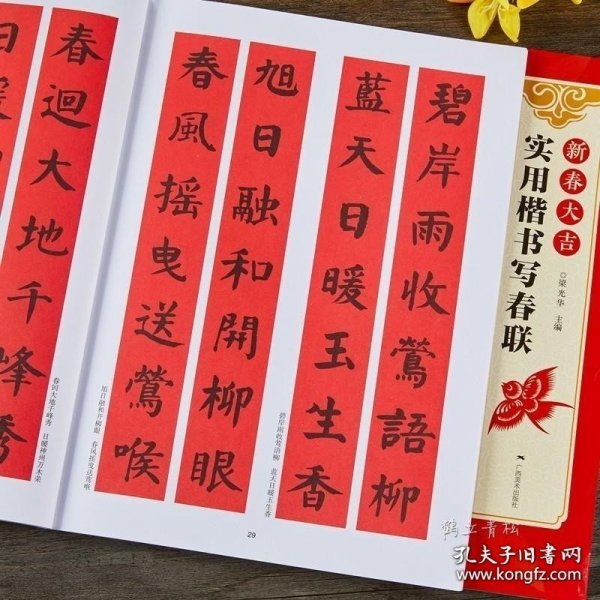 碧岸雨收鶯語柳
藍天日暖玉生香
碧岸雨收莺语柳 蓝天日暖玉生香
旭日融和開柳眼
春風摇曳送鶯喉
旭日融和开柳眼 春风摇曳送莺喉
29
春迴大地千峰秀
春回大地千峰秀 日暖神州万木荣
日暖
新春大吉
实用楷书写春联
◎梁光华 主编
广西美术出版社
鹤立青松
孔夫子旧书网
www.kongfz.com